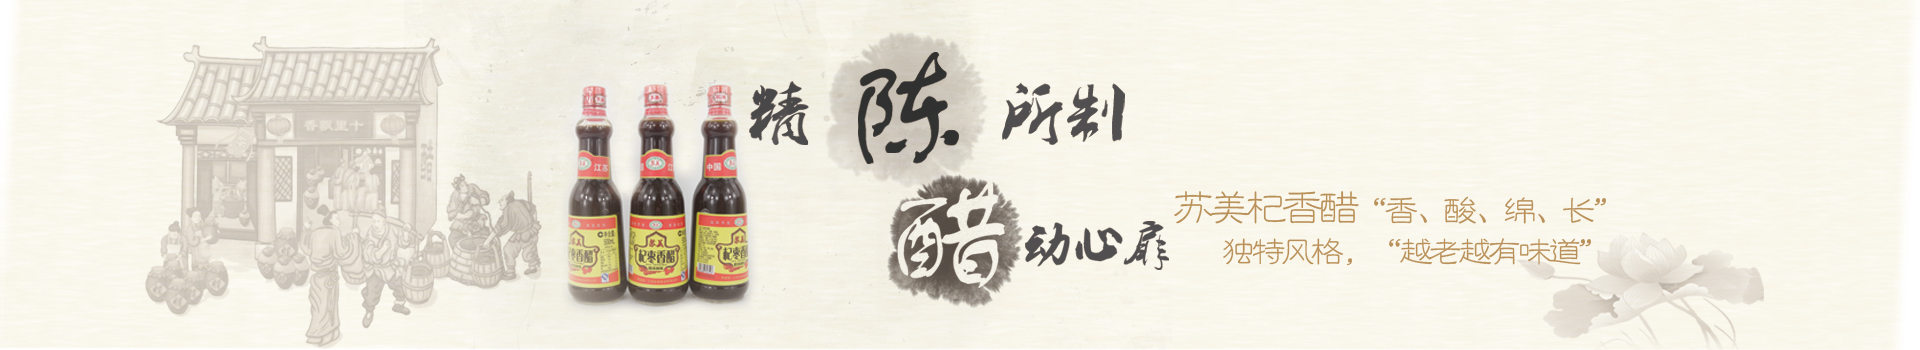 精陈所制
醋动心扉
苏美杞香醋“香、酸、绵、长”
独特风格，“越老越有味道”
香飘里十
中国
江苏
苏美
杞枣香醋